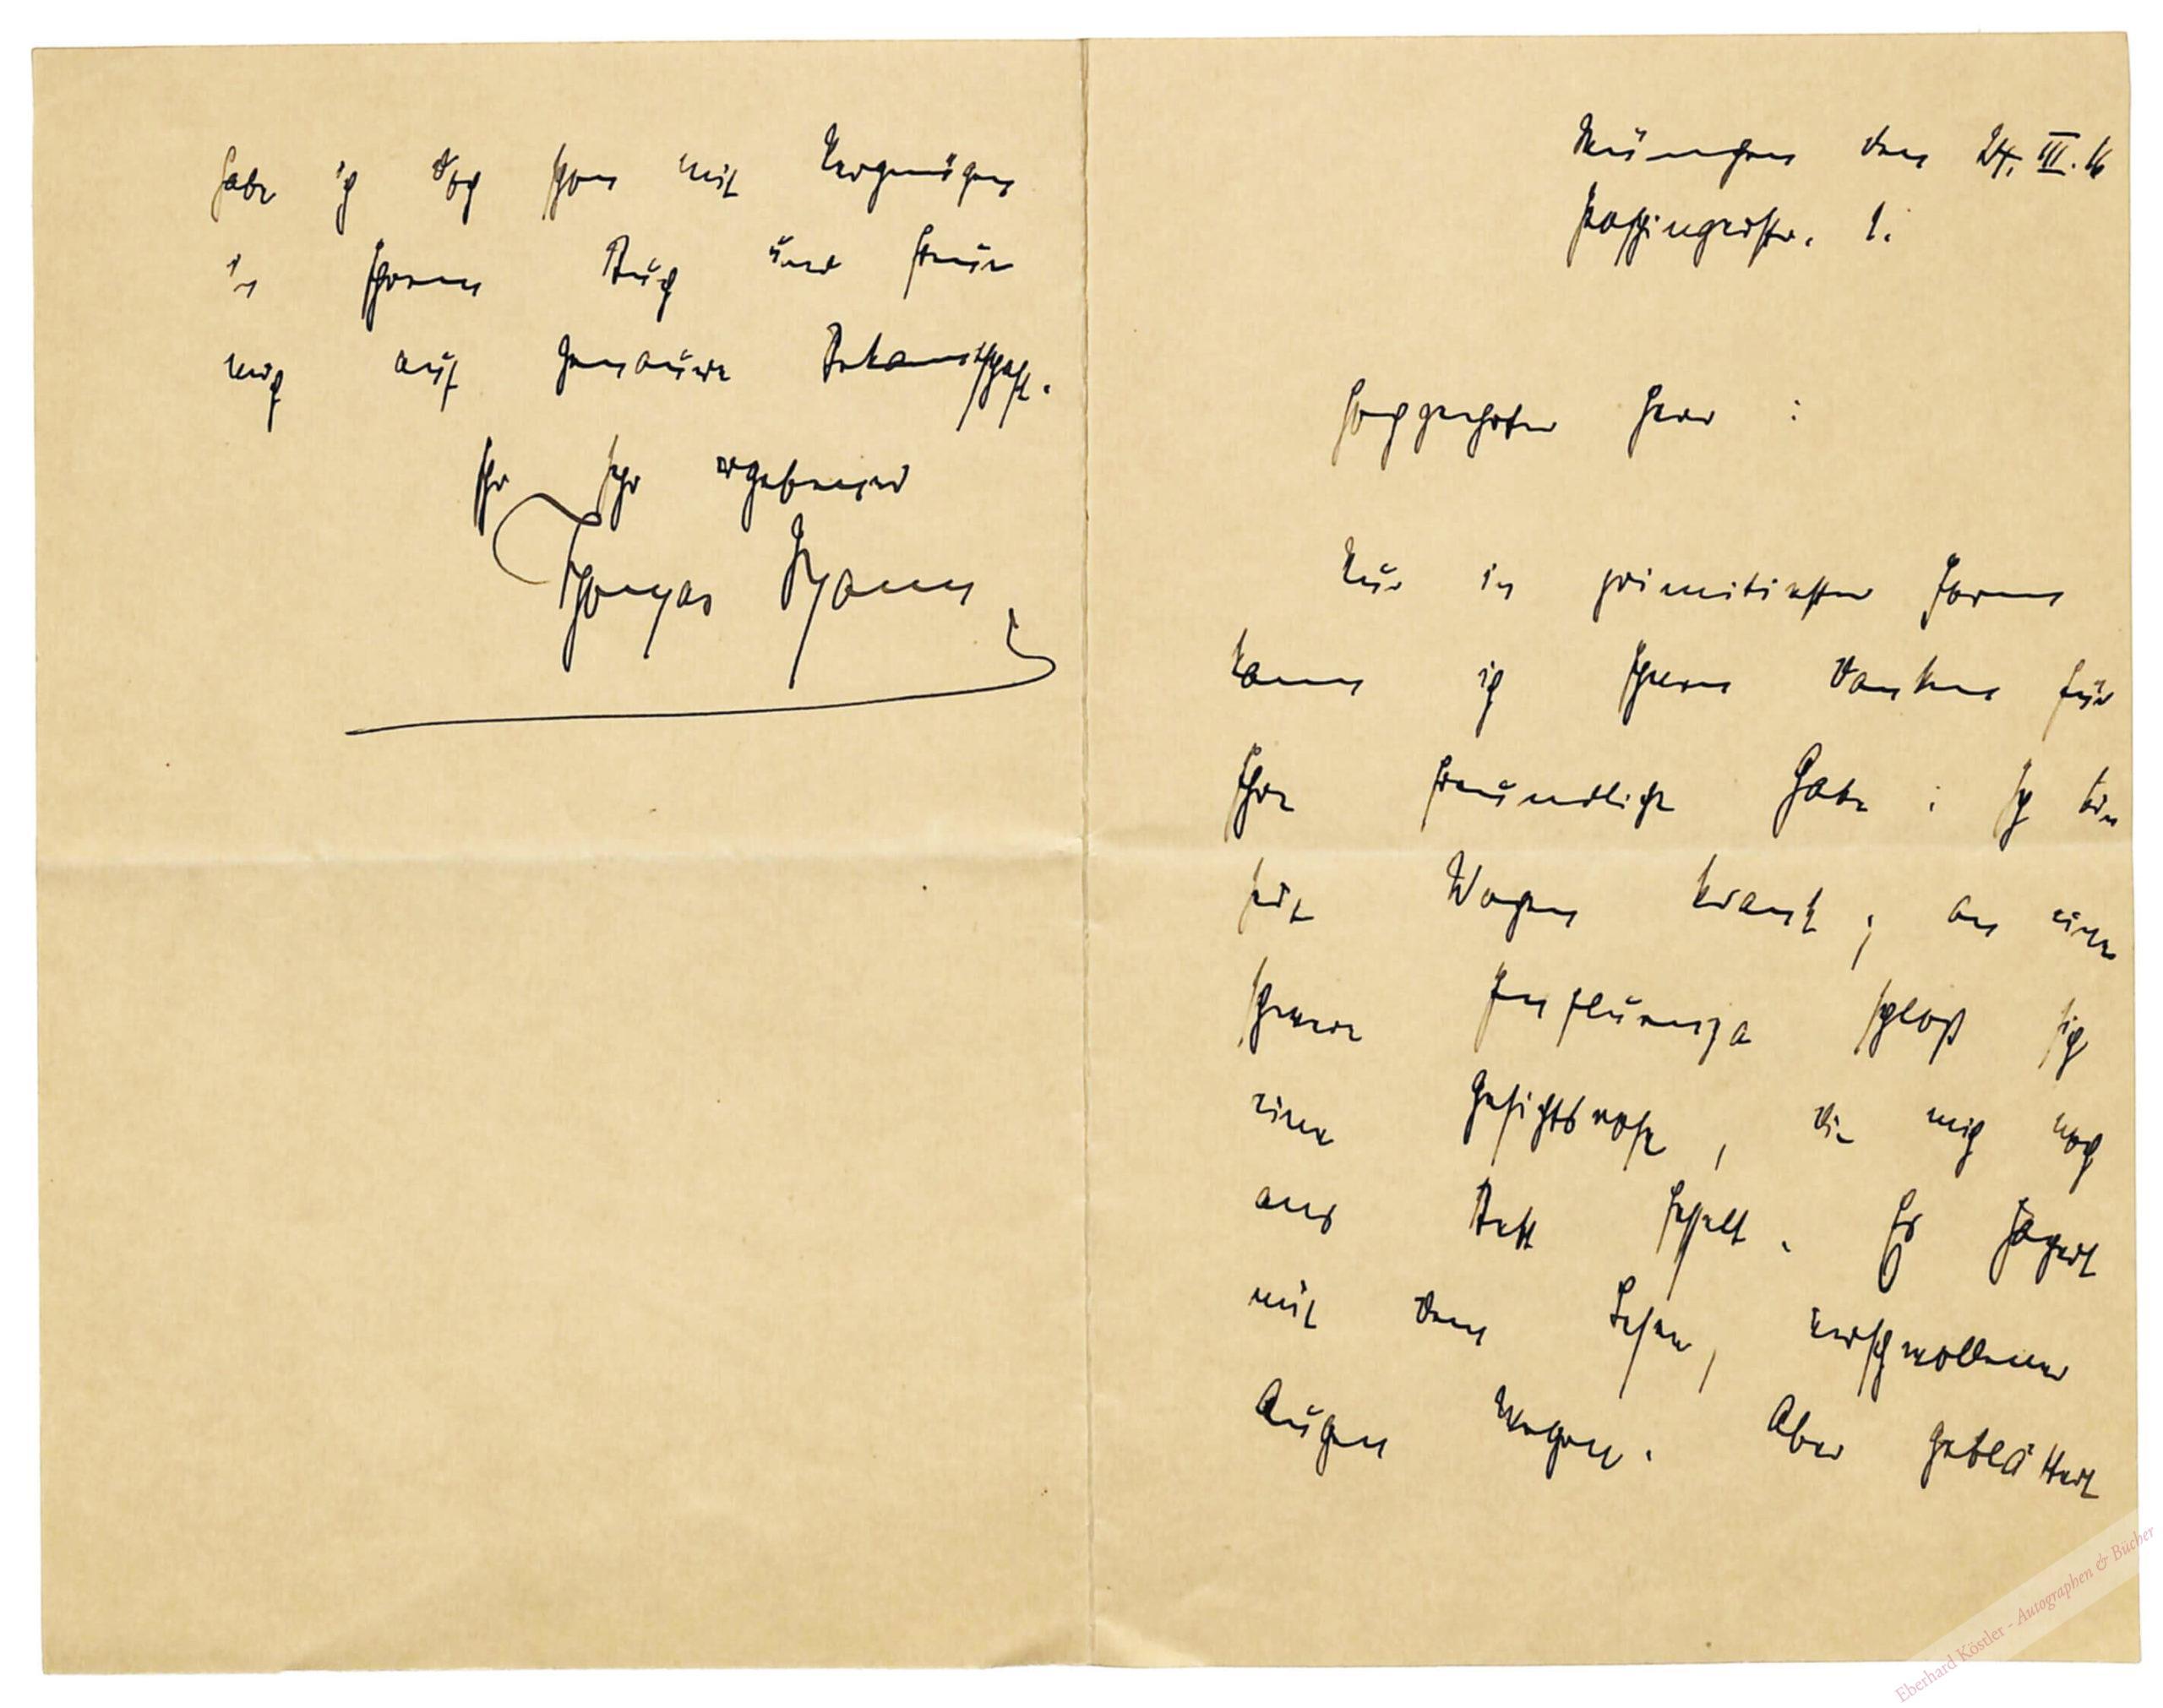 München den 24. III. 16
Poschingerstr. 1.
Hochgeehrter Herr:
Nur in primitivster Form
kann ich Ihnen danken für
Ihre freundliche Gabe: Ich bin
seit Wochen krank; an eine
schwere Influenza schloß sich
eine Gesichtsrose, die mich noch
ans Bett fesselt. Es hapert
mit dem Lesen, verschwollener
Augen wegen. Aber geblättert
habe ich doch schon mit Vergnügen
in Ihrem Buch und freue
mich auf genauere Bekanntschaft.
Ihr sehr ergebener
Thomas Mann
Eberhard Köstler - Autographen & Bücher